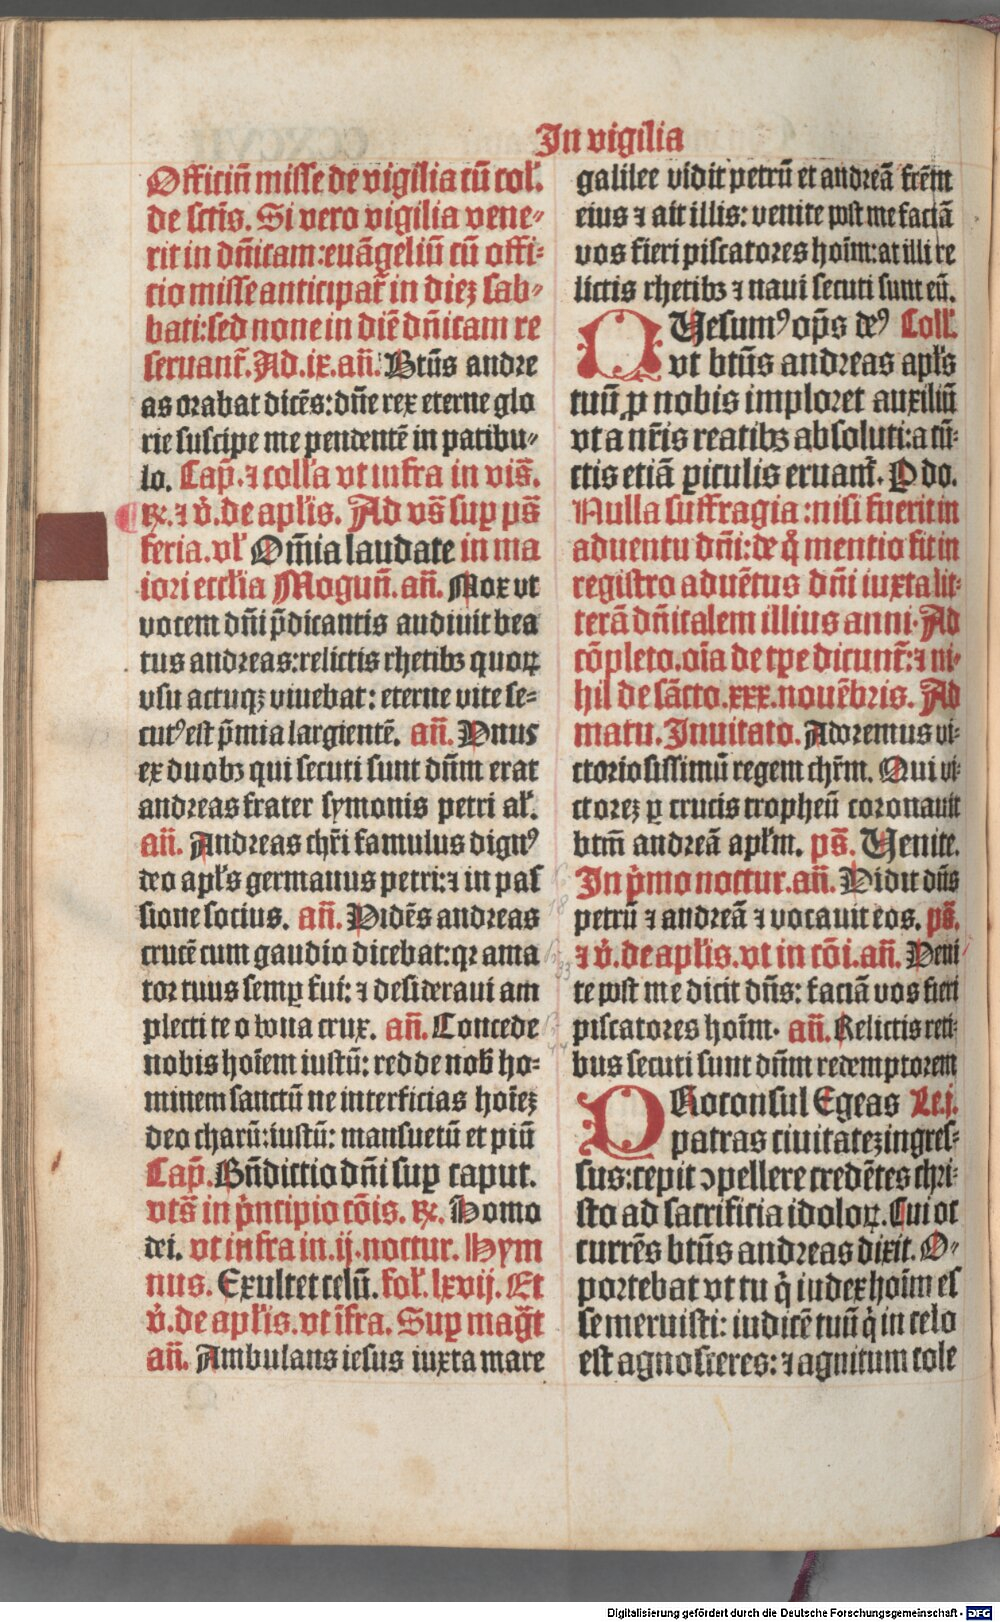 In vigilia
Officiū misse de vigilia cū coll'.
de sctīs. Si vero vigilia vene⸗
rit in dn̄icam: euāgeliū cū offi⸗
cio misse anticipat᷑ in diez sab⸗
bati: sed none in diē dn̄icam re
seruant᷑. Ad .ix. an̄. Btūs andre
as orabat dicēs: dn̄e rex eterne glo
rie suscipe me pendentē in patibu⸗
lo. Cap̄. ⁊ coll'a vt infra in vis̄.
℟. ⁊ v̇. de apl'is. Ad vs̄ sup ps̄
feria. vl' Om̄ia laudate in ma
iori eccl'ia Mogun̄. an̄. Mox vt
vocem dn̄i p̄dicantis audiuit bea
tus andreas: relictis rhetibꝫ quoꝝ
vsu actuqꝫ viuebat: eterne vite se⸗
cutꝰ est p̄mia largientē. an̄. Vnus
ex duobꝫ qui secuti sunt dn̄m erat
andreas frater symonis petri al'.
an̄. Andreas chr̄i famulus dignꝰ
deo apl's germanus petri: ⁊ in pas
sione socius. an̄. Vidēs andreas
crucē cum gaudio dicebat: qꝛ ama
tor tuus semꝑ fui: ⁊ desideraui am
plecti te o bona crux. an̄. Concede
nobis hoīem iustū: redde nob̄ ho⸗
minem sanctū ne interficias hoīez
deo charū: iustū: mansuetū et piū
Cap̄. Bn̄dictio dn̄i sup caput.
vts̄ in p̄ncipio cōis. ℟. Homo
dei. vt infra in .ij. noctur. Hym
nus. Exultet celū. fol'. lxvij. Et
v̇. de apl'is. vt īfra. Sup mag̅t
an̄. Ambulans iesus iuxta mare
galilee vidit petrū et andreā frēm
eius ⁊ ait illis: venite post me faciā
vos fieri piscatores hoīm: at illi re
lictis rhetibꝫ ⁊ naui secuti sunt eū.
QVesumꝰ op̄s deꝰ Coll'.
vt btūs andreas apl's
tuū ꝓ nobis imploret auxiliū
vt a nr̄is reatibꝫ absoluti: a cū⸗
ctis etiā ꝑiculis eruant᷑. P do.
Nulla suffragia: nisi fuerit in
aduentu dn̄i: de q̇ mentio fit in
registro aduētus dn̄i iuxta lit⸗
terā dn̄icalem illius anni. Ad
cōpleto. oīa de tꝑe dicunt᷑: ⁊ ni⸗
hil de sācto. xxx. nouēbris. Ad
matu. Inuitato. Adoremus vi⸗
ctoriosissimū regem chr̄m. Qui vi⸗
ctorez ꝑ crucis tropheū coronauit
btm̄ andreā apl'm. ps̄. Venite.
In p̄mo noctur. an̄. Vidit dn̄s
petrū ⁊ andreā ⁊ vocauit eos. ps̄.
⁊ v̇. de apl'is. vt in cōi. an̄. Veni
te post me dicit dn̄s: faciā vos fieri
piscatores hoīm. an̄. Relictis reti⸗
bus secuti sunt dn̄m redemptorem
PRoconsul Egeas Le. j.
patras ciuitatez ingres⸗
sus: cepit ↄpellere credētes chri⸗
sto ad sacrificia idoloꝝ. Cui oc
currēs btūs andreas dixit. O⸗
portebat vt tu q̇ iudex hoīm es
se meruisti: iudicē tuū q̇ in celo
est agnosceres: ⁊ agnitum cole
Digitalisierung gefördert durch die Deutsche Forschungsgemeinschaft - DFG